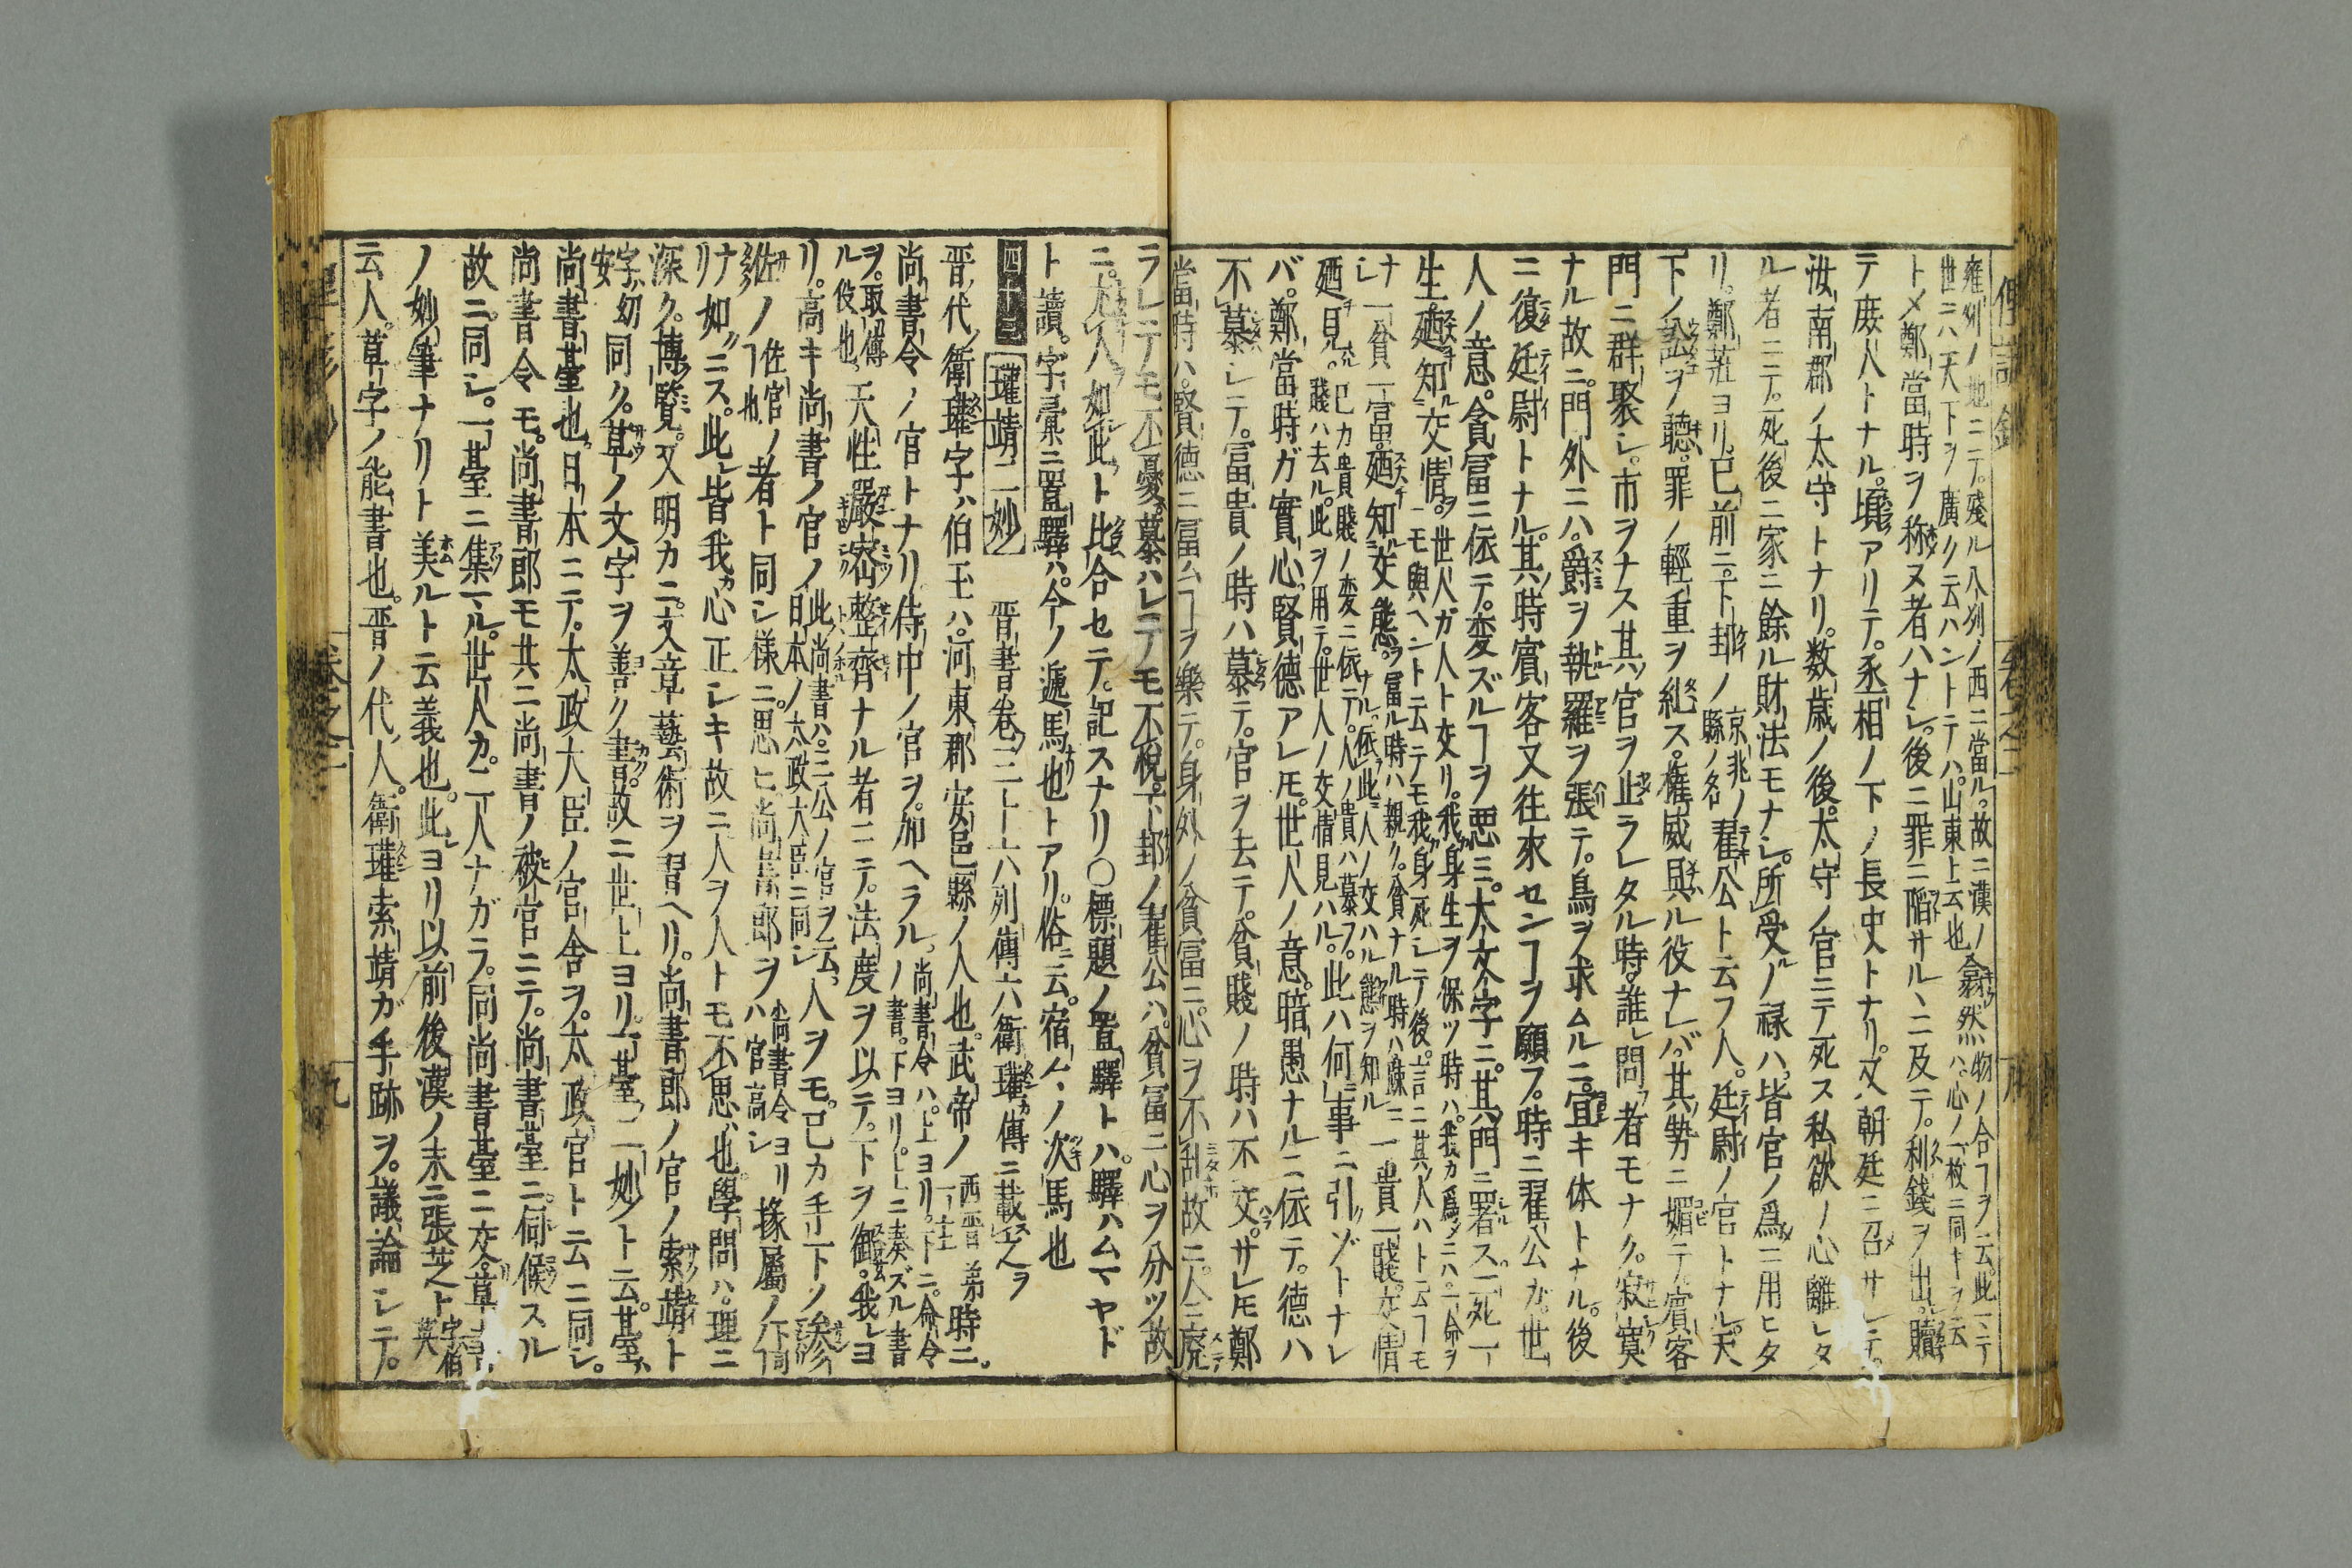 雍州ノ地ニテ。殘ル八州ノ西ニ當ル。故ニ漢ノ
世ニハ天下ヲ廣ク云ハントテハ。山東上云也
翕然ハ。心ノ一枚ニ同キヲ云
物ノ合フヿヲ云。此ニテ
トメ鄭當時ヲ称ヌ者ハナシ。後ニ罪ニ陷サルヽニ及テ。利錢ヲ出。贖
テ庻人トナル。頃アリテ。丞相ノ下ノ長史トナリ。又朝廷ニ召サレテ。
汝南郡ノ太守トナリ。数歳ノ後。太守ノ官ニテ死ス私欲ノ心離レタ
ル者ニテ。死後ニ家ニ餘ル財法モナシ。所受ノ禄ハ。皆官ノ爲ニ用ヒタ
リ。鄭莊ヨリ。已前ニ。下邽ノ京兆ノ縣ノ名翟公ト云フ人。廷尉ノ官トナル。天
下ノ訟ヲ聴。罪ノ輕重ヲ糺ス。權威與ル役ナレバ。其勢ニ媚テ。賓客
門ニ群聚シ。市ヲナス其官ヲ止ラレタル時。誰問者モナク。寂寞
ナル故ニ。門外ニハ。爵ヲ執羅ヲ張テ。鳥ヲ求ムルニ。宜キ体トナル。後
ニ復廷尉トナル。其時賓客又往來センヿヲ願フ。時ニ翟公カ。世
人ノ意。貪冨ニ依テ。変ズルヿヲ悪ミ。大文字ニ。其門ニ署ス。一死一
生。廼知交情。世人ガ人ト交リ。我身生ヲ保ツ時ハ。我カ爲メニハ。一命ヲ
モ與ヘント云テモ我身死シテノ後。一言ニ其人ハト云フヿモ
ナシ一貧一冨。廼知交態。冨ル時ハ親ク。貧ナル時ハ疎
一貴一賤。交情
廼見。已カ貴賤ノ変ニ依テ。人ノ貴ハ慕フ。
賤ハ去ル。此ヲ用テ。世人ノ交情見ハル。此ハ何事ニ引ゾトナレ
バ。鄭當時ガ實心。賢德アレ𪜈。世人ノ意。暗愚ナルニ依テ。德ハ
不慕シテ。富貴ノ時ハ慕テ。官ヲ去テ。貧賤ノ時ハ不交。サレ𪜈鄭
當時ハ。賢德ニ冨ムヿヲ樂テ。身外ノ貧冨ニ。心ヲ不乱故ニ。人ニ廃
ラレテモ不憂。慕ハレテモ不悅。下邽ノ翟公ハ。貧冨ニ心ヲ分ツ故
ニ。大人如此ト比合セテ。記スナリ〇標題ノ置驛トハ。驛ハムマヤド
ト讀。字彙ニ置驛ハ。今ノ遞馬也トアリ。俗云。宿々ノ次馬也
四十三 瓘靖二妙 晋書卷三十六列傳六衛瓘カ傳ニ載之ヲ
晋ノ代ノ衛瓘字ハ伯玉ハ。河東郡安邑縣ノ人也。武帝ノ西晋第一ノ主時ニ。
尚書令ノ官トナリ侍中ノ官ヲ。加ヘラル。尚書令ハ。上ヨリ。下ニ。命令ノ書。下ヨリ。上ニ奏ズル書
ヲ。取傳ル役也。天性嚴宻整齊ナル者ニテ。法度ヲ以テ。下ヲ御。我レヨ
リ。高キ尚書ノ官ノ此尚書ハ。三公ノ官ヲ云。日本ノ太政大臣ニ同シ人ヲモ。已カ手下ノ参
佐ノ佐官ノヿ也者ト同シ様ニ。思ヒ。尚書郎ヲハ尚書令ヨリ官高シ掾屬ノ下司
ナリ如ニス。此皆我カ心正シキ故ニ人ヲ人トモ不思也學問ハ。理ニ
深ク。博覽。又明カニ。文章藝術ヲ習ヘリ。尚書郎ノ官ノ索靖ト
字ハ幼安同ク。草ノ文字ヲ善ク書。故ニ世上ヨリ。一臺ノ二妙ト云。其臺ハ
尚書臺也。日本ニテ。太政大臣ノ官舎ヲ。太政官ト云ニ同シ。
尚書令モ。尚書郎モ其ニ尚書ノ被官ニテ。尚書臺ニ。伺候スル
故ニ。同シ。一臺ニ集マル。世人カ。二人ナガラ。同尚書臺ニ交。草書
ノ妙筆ナリト美ルト云義也。此ヨリ以前。後漢ノ末ニ張芝ト字伯英
云人。草字ノ能書也。晋ノ代ノ人。衛瓘索靖ガ手跡ヲ。議論シテ。